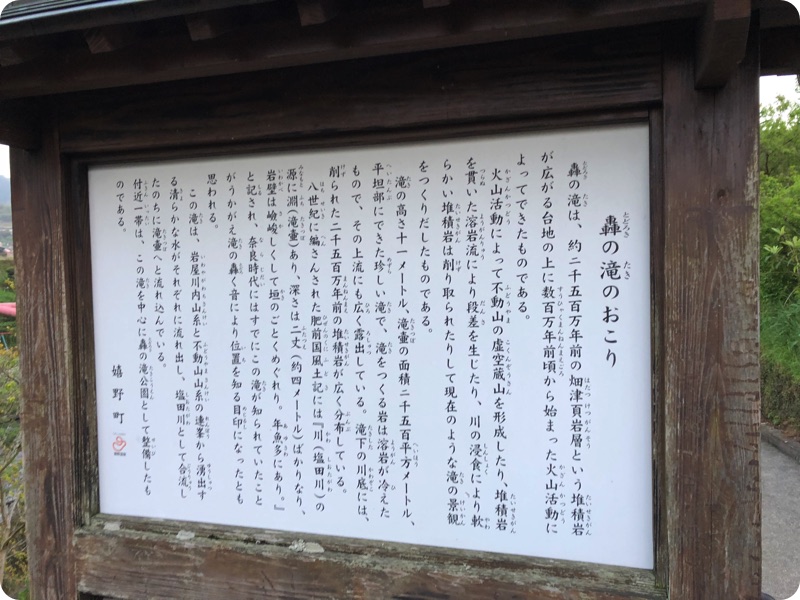 轟の滝のおこり
轟の滝は、約二千五百万年前の畑津頁岩層という堆積岩
が広がる台地の上に数百万年前頃から始まった火山活動に
よってできたものである。
火山活動によって不動山の虚空蔵山を形成したり、堆積岩
を貫いた溶岩流により段差を生じたり、川の浸食により軟
らかい堆積岩は削り取られたりして現在のような滝の景観
をつくりだしたものである。
滝の高さ十一メートル、滝壷の面積二千五百平方メートル、
平坦部にできた珍しい滝で、滝をつくる岩は溶岩が冷えた
もので、その上流にも広く露出している。滝下の川底には、
削られた二千五百万年前の堆積岩が広く分布している。
八世紀に編さんされた肥前国風土記には『川(塩田川)の
源に淵(滝壷)あり、深さは二丈(約四メートル)ばかりなり、
岩壁は嶮峻しくして垣のごとくめぐれり。年魚多にあり。』
と記され、奈良時代にはすでにこの滝が知られていたこと
がうかがえ滝の轟く音により位置を知る目印になったとも
思われる。
この滝は、岩屋川内山系と不動山山系の連峯から湧出す
る清らかな水がそれぞれに流れ出し、塩田川として合流し
たのちに滝壷へと流れ込んでいる。
付近一帯は、この滝を中心に轟の滝公園として整備したも
のである。
嬉野町